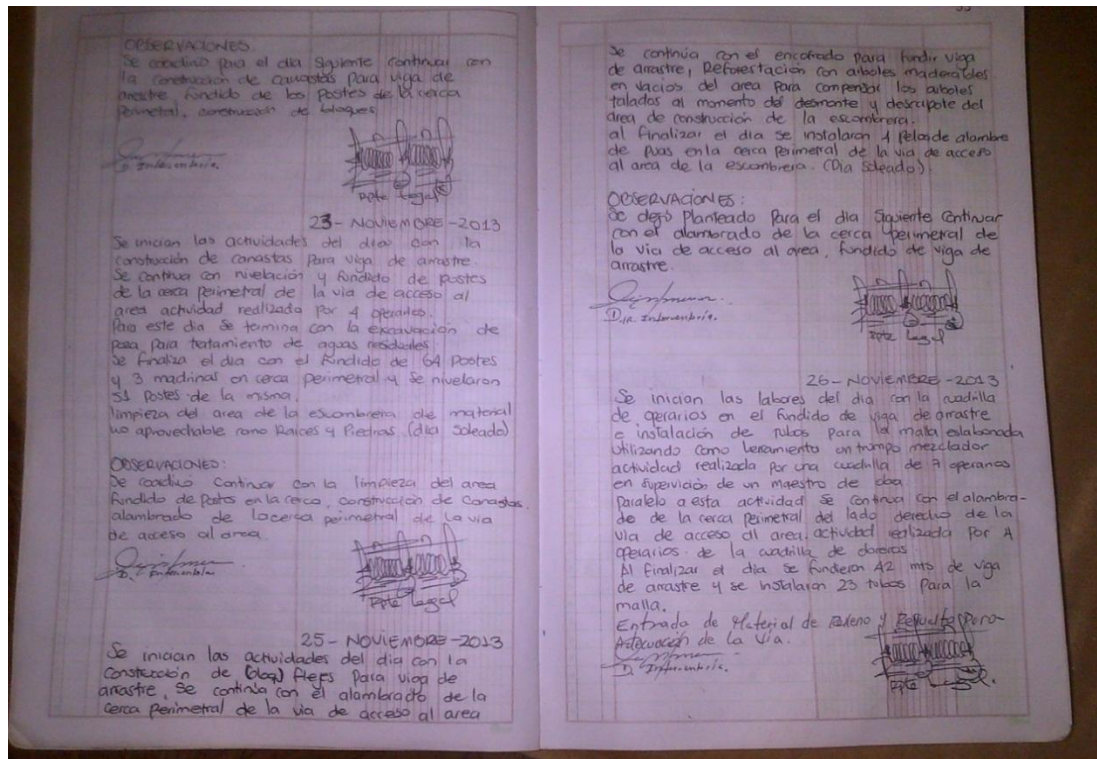 OBSERVACIONES.
Se coodino para el dia siguiente continuar con
la construcción de canastas para viga de
arrastre fundido de los postes de la cerca
perimetral, construcción de bloques
D. Interventoria.
Rpte Legal
23 - NOVIEMBRE - 2013
Se inician las actividades del dias con la
construcción de canastas para viga de arrastre.
Se continua con nivelación y fundido de postes
de la cerca perimetral de la via de acceso al
area actividad realizada por 4 operarios.
Para este dia se termina con la excavación de
poza para tratamiento de aguas residuales.
Se finaliza el dia con el fundido de 64 postes
y 3 madrinas en cerca perimetral y se nivelaron
51 postes de la misma.
limpieza del area de la escombrera de material
no aprovechable como Raices y Piedras. (dia soleado)
OBSERVACIONES:
Se coodino continuar con la limpieza del area
fundido de postes en la cerca, construcción de canastas
alambrado de la cerca perimetral de la via
de acceso al area.
D. Interventoria
Rpte Legal
25 - NOVIEMBRE - 2013
Se inician las actividades del dia con la
construcción de flejes para viga de
arrastre, se continúa con el alambrado de la
cerca perimetral de la via de acceso al area
Se continúa con el encofrado para fundir viga
de arrastre, Reforestación con arboles maderables
en vacios del area para compensar los arboles
talados al momento del desmonte y descapote del
area de construcción de la escombrera.
al finalizar el dia se instalaron 4 pelos de alambre
de puas en la cerca perimetral de la via de acceso
al area de la escombrera. (Dia Soleado).
OBSERVACIONES:
Se dejó planteado para el dia siguiente continuar
con el alambrado de la cerca perimetral de
la via de acceso al area, fundido de viga de
arrastre.
Dir. Interventoria.
Rpte Legal
26 - NOVIEMBRE - 2013
Se inician las labores del dia con la cuadrilla
de operarios en el fundido de viga de arrastre
e instalación de tubos para la malla eslabonada
utilizando como herramienta un trompo mezclador
actividad realizada por una cuadrilla de 7 operarios
en supervición de un maestro de oba.
Paralelo a esta actividad se continua con el alambra-
do de la cerca perimetral del lado derecho de la
via de acceso al area, actividad realizada por 4
operarios de la cuadrilla de
Al finalizar el dia se fundieron 42 mts de viga
de arrastre y se instalaron 23 tubos para la
malla.
Entrada de Material de Relleno y para
Adecuación de La Via.
D. Interventoria.
Rpte Legal.